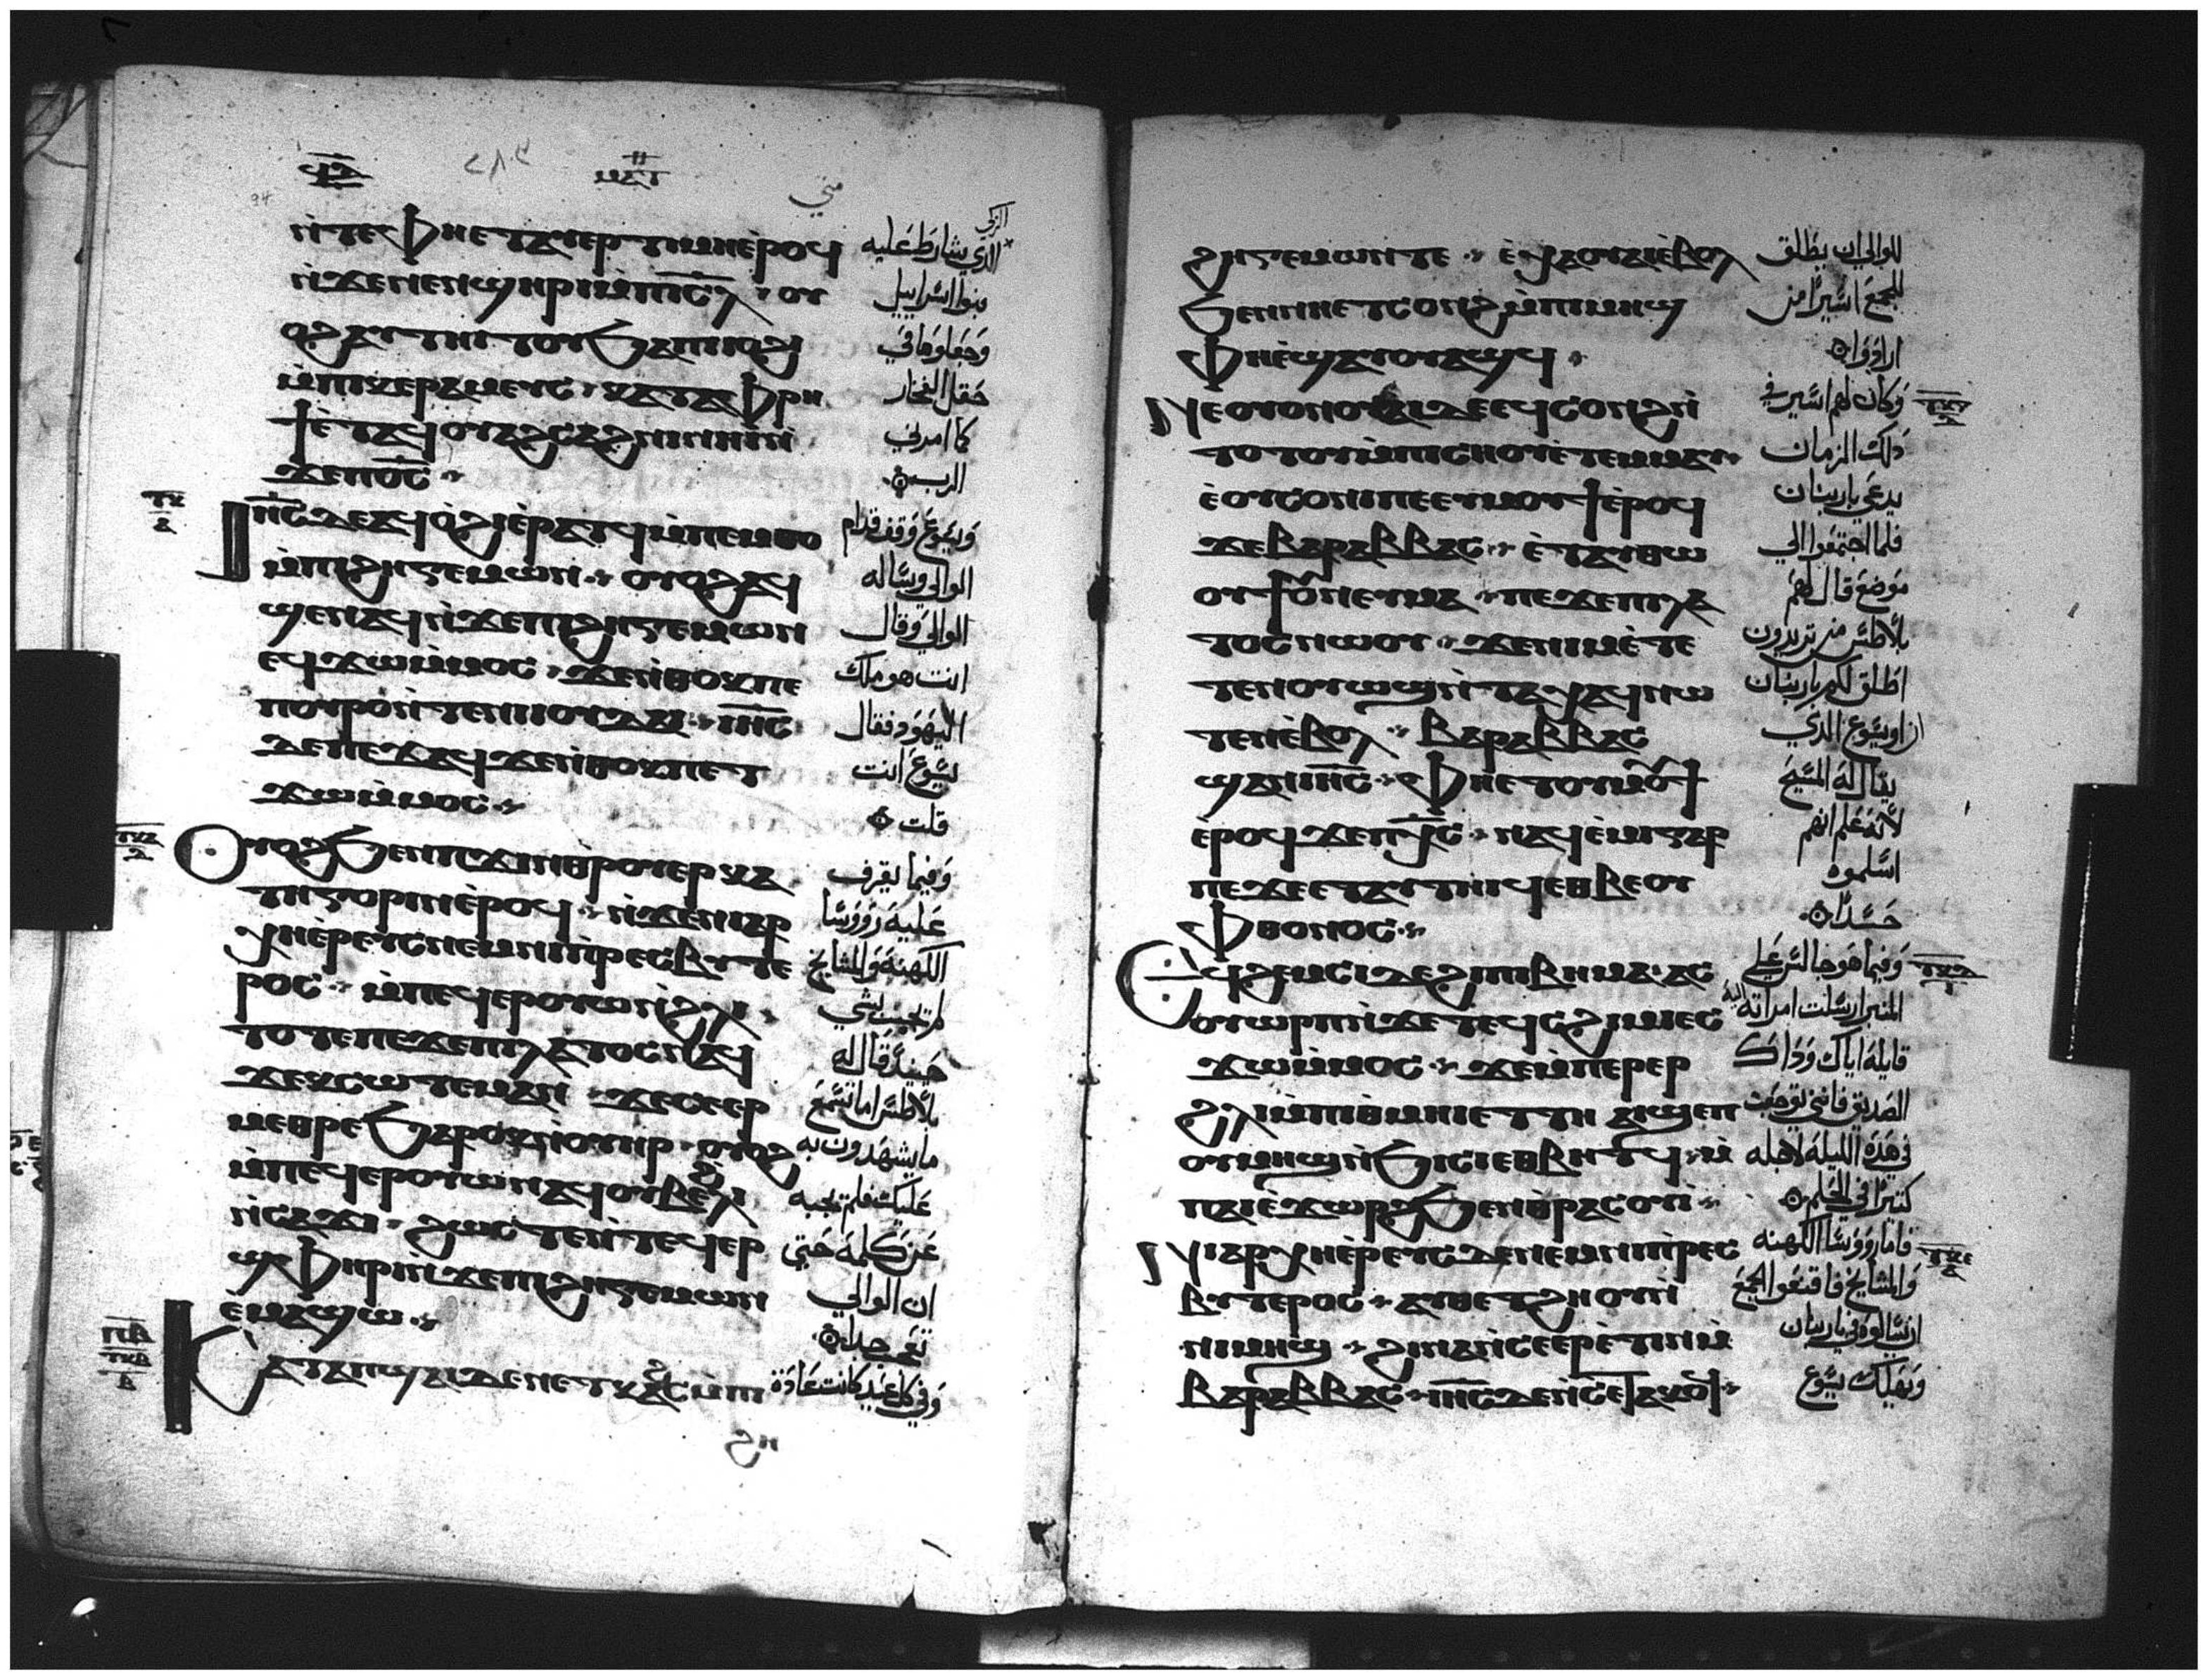 ⲙⲁⲧ
متي
ⲛ̀ⲧⲉⲫⲏⲉⲧⲁⲩⲉⲣⲧⲓⲙⲏⲉ̀ⲣⲟϥ الذي يشارط عليه
ⲛ̀ϫⲉⲛⲉⲛϣⲏⲣⲓⲙ̀ⲡⲓⲥ̅ⲗ̅ ⲟⲩ بنوا اسراييل
ⲟϩⲁⲩⲧⲏⲓⲧⲟⲩϧⲁⲡⲓⲓⲟϩⲓ وجعلوها في
ⲙ̀ⲡⲓⲕⲉⲣⲁⲙⲉⲩⲥ ⲕⲁⲧⲁⲫⲣⲏ حقل الفخار
ϯⲉ̀ⲧⲁϥⲟⲩⲁϩⲥⲁϩⲛⲓⲛⲏⲓⲛ̀ كما امرني
ϫⲉⲡⲟ̅ⲥ̅ الرب
ⲓⲏ̅ⲥ̅ⲇⲉⲁϥⲟ̀ϩⲓⲉ̀ⲣⲁⲧϥⲙ̀ⲡⲉⲙⲑⲟ ويسوع وقف قدام
ⲙ̀ⲡⲓϩⲏⲅⲉⲙⲱⲛ ⲟⲩⲟϩⲁϥ الوالي وساله
ϣⲉⲛϥⲛ̀ϫⲉⲡⲓϩⲏⲅⲉⲙⲱⲛ الوالي وقال
ⲉϥϫⲱⲙ̀ⲙⲟⲥ ϫⲉⲛ̀ⲑⲟⲕⲡⲉ انت هو ملك
ⲡⲟⲩⲣⲟⲛ̀ⲧⲉⲛⲓⲓⲟⲩⲇⲁⲓ ⲓⲏ̅ⲥ̅ اليهود فقال
ⲇⲉⲡⲉϫⲁϥϫⲉⲛ̀ⲑⲟⲕⲡⲉⲧ يسوع انت
ϫⲱⲙ̀ⲙⲟⲥ قلت
ⲟⲩⲟϩϧⲉⲛⲡϫⲓⲛⲑⲣⲟⲩⲉⲣⲕⲁ وفيما يقرف
ⲧⲏⲅⲟⲣⲓⲛⲉ̀ⲣⲟϥ ⲛ̀ϫⲉⲛⲓⲁⲣ عليه رووسا
ⲭⲏⲉ̀ⲣⲉⲩⲥⲛⲉⲙⲛⲓⲡⲣⲉⲥⲃⲩⲧⲉ الكهنة والمشايخ
ⲣⲟⲥ ⲙ̀ⲡⲉϥⲉⲣⲟⲩⲱⲛ̀ϩⲗⲓ لم يجيب بشي
ⲧⲟⲧⲉⲡⲉϫⲉⲡⲓⲗⲁⲧⲟⲥⲛⲁϥ حينيذ قال له
ϫⲉⲕⲥⲱⲧⲉⲙⲁⲛ ϫⲉⲥⲉⲉⲣ بلاطس اما تسمع
ⲙⲉⲑⲣⲉϧⲁⲣⲟⲕⲛ̀ⲟⲩⲏⲣ ⲟⲩⲟϩ ما يشهدون به
ⲙ̀ⲡⲉϥⲉⲣⲟⲩⲱⲛⲁϥⲟⲩⲃⲉϩⲗⲓ عليك فلم يجبه
ⲛ̀ⲥⲁϫⲓ ϩⲱⲥⲧⲉⲛ̀ⲧⲉϥⲉⲣ عن كلمة حتي
ϣⲫⲏⲣⲓⲛ̀ϫⲉⲡⲓϩⲏⲅⲉⲙⲱⲛ ان الوالي
ⲉ̀ⲙⲁϣⲱ تعجب جدا
ⲕⲁⲧⲁⲡϣⲁⲓⲇⲉⲛⲉⲧⲕⲁϩⲥⲙ̀ⲡⲓ وفي كل عيد كانت عادة
ϩⲏ
ϩⲏⲅⲉⲙⲱⲛⲧⲉ ⲉ̀ⲭⲁⲟⲩⲁⲓⲉ̀ⲃⲟⲗ للوالي ان يطلق
ϧⲉⲛⲛⲏⲉⲧⲥⲟⲛϩⲙ̀ⲡⲓⲙⲏϣ للجمع اسيرا من
ⲫⲏⲉ̀ϣⲁⲩⲟⲩⲁϣϥ ارادوا
ⲛⲉⲟⲩⲟⲛⲟⲩⲁⲓⲇⲉⲉϥⲥⲟⲛϩⲛ̀ وكان لهم اسير في
ⲧⲟⲧⲟⲩⲙ̀ⲡⲓⲥⲏⲟⲩⲉ̀ⲧⲉⲙⲙⲁⲩ ذلك الزمان
ⲉ̀ⲟⲩⲥⲟⲛⲓⲡⲉⲉⲩⲙⲟⲩϯⲉ̀ⲣⲟϥ يدعي باربنان
ϫⲉⲃⲁⲣⲁⲃⲃⲁⲥ ⲉ̀ⲧⲁⲩⲑⲱ فلما اجتمعوا الي
ⲟⲩϯⲟⲩⲛⲉⲩⲙⲁ ⲡⲉϫⲉⲡⲓⲗⲁ موضع قال لهم
ⲧⲟⲥⲛⲱⲟⲩ ϫⲉⲛⲓⲙⲉ̀ⲧⲉ بلاطس من تريدون
ⲧⲉⲛⲟⲩⲱϣⲛ̀ⲧⲁⲭⲁϥⲛⲱ اطلق لكم باربنان
ⲧⲉⲛⲉ̀ⲃⲟⲗ ⲃⲁⲣⲁⲃⲃⲁⲥ او يسوع الذي
ϣⲁⲛⲓⲏ̅ⲥ̅ ⲫⲏⲉⲧⲟⲩⲙⲟⲩϯ يقال له المسيح
ⲉ̀ⲣⲟϥϫⲉⲡⲭ̅ⲥ̅ ⲛⲁϥⲉ̀ⲙⲓⲅⲁⲣ لانه علم انهم
ⲡⲉϫⲉⲉⲧⲁⲩⲧⲏⲓϥⲉⲑⲃⲉⲟⲩ اسلموه
ⲫⲑⲟⲛⲟⲥ حسدا
ⲉϥϩⲉⲙⲥⲓⲇⲉϩⲓⲡⲓⲃⲏⲙⲁ ⲁⲥ وفيما هو جالس علي
ⲟⲩⲱⲣⲡⲛ̀ϫⲉⲧⲉϥⲥϩⲓⲙⲉⲥ المنبر ارسلت امراته اليه
ϫⲱⲙ̀ⲙⲟⲥ ϫⲉⲙ̀ⲡⲉⲣⲉⲣ قايلة اياك وذاك
ϩⲗⲓⲙ̀ⲡⲓⲑⲙⲏⲓⲉⲧⲧⲏ ⲁⲓϣⲉⲡ الصديق فانني توجعت
ⲟⲩⲙⲏϣⲛ̀ϧⲓⲥⲓⲉⲑⲃⲏⲧϥ ⲙ̀ في هذه الليلة لاجله
ⲡⲁⲓⲉ̀ϫⲱⲣϩϧⲉⲛⲑⲣⲁⲥⲟⲩⲓ̀ كثيرا في الحلم
ⲛⲓⲁⲣⲭⲏⲉ̀ⲣⲉⲩⲥⲇⲉⲛⲉⲙⲛⲓⲡⲣⲉⲥ فاما رووسا الكهنه
ⲃⲩⲧⲉⲣⲟⲥ ⲁⲩⲑⲉⲧϩⲏⲟⲩⲛ̀ والمشايخ فاقنعوا الجمع
ⲛⲓⲙⲏϣ ϩⲓⲛⲁⲛ̀ⲥⲉⲉⲣⲉ̀ⲧⲓⲛⲙ̀ ان يسالوه في باربنان
ⲃⲁⲣⲁⲃⲃⲁⲥ ⲓⲏ̅ⲥ̅ⲇⲉⲛ̀ⲥⲉⲧⲁⲕⲟϥ ويهلك يسوع